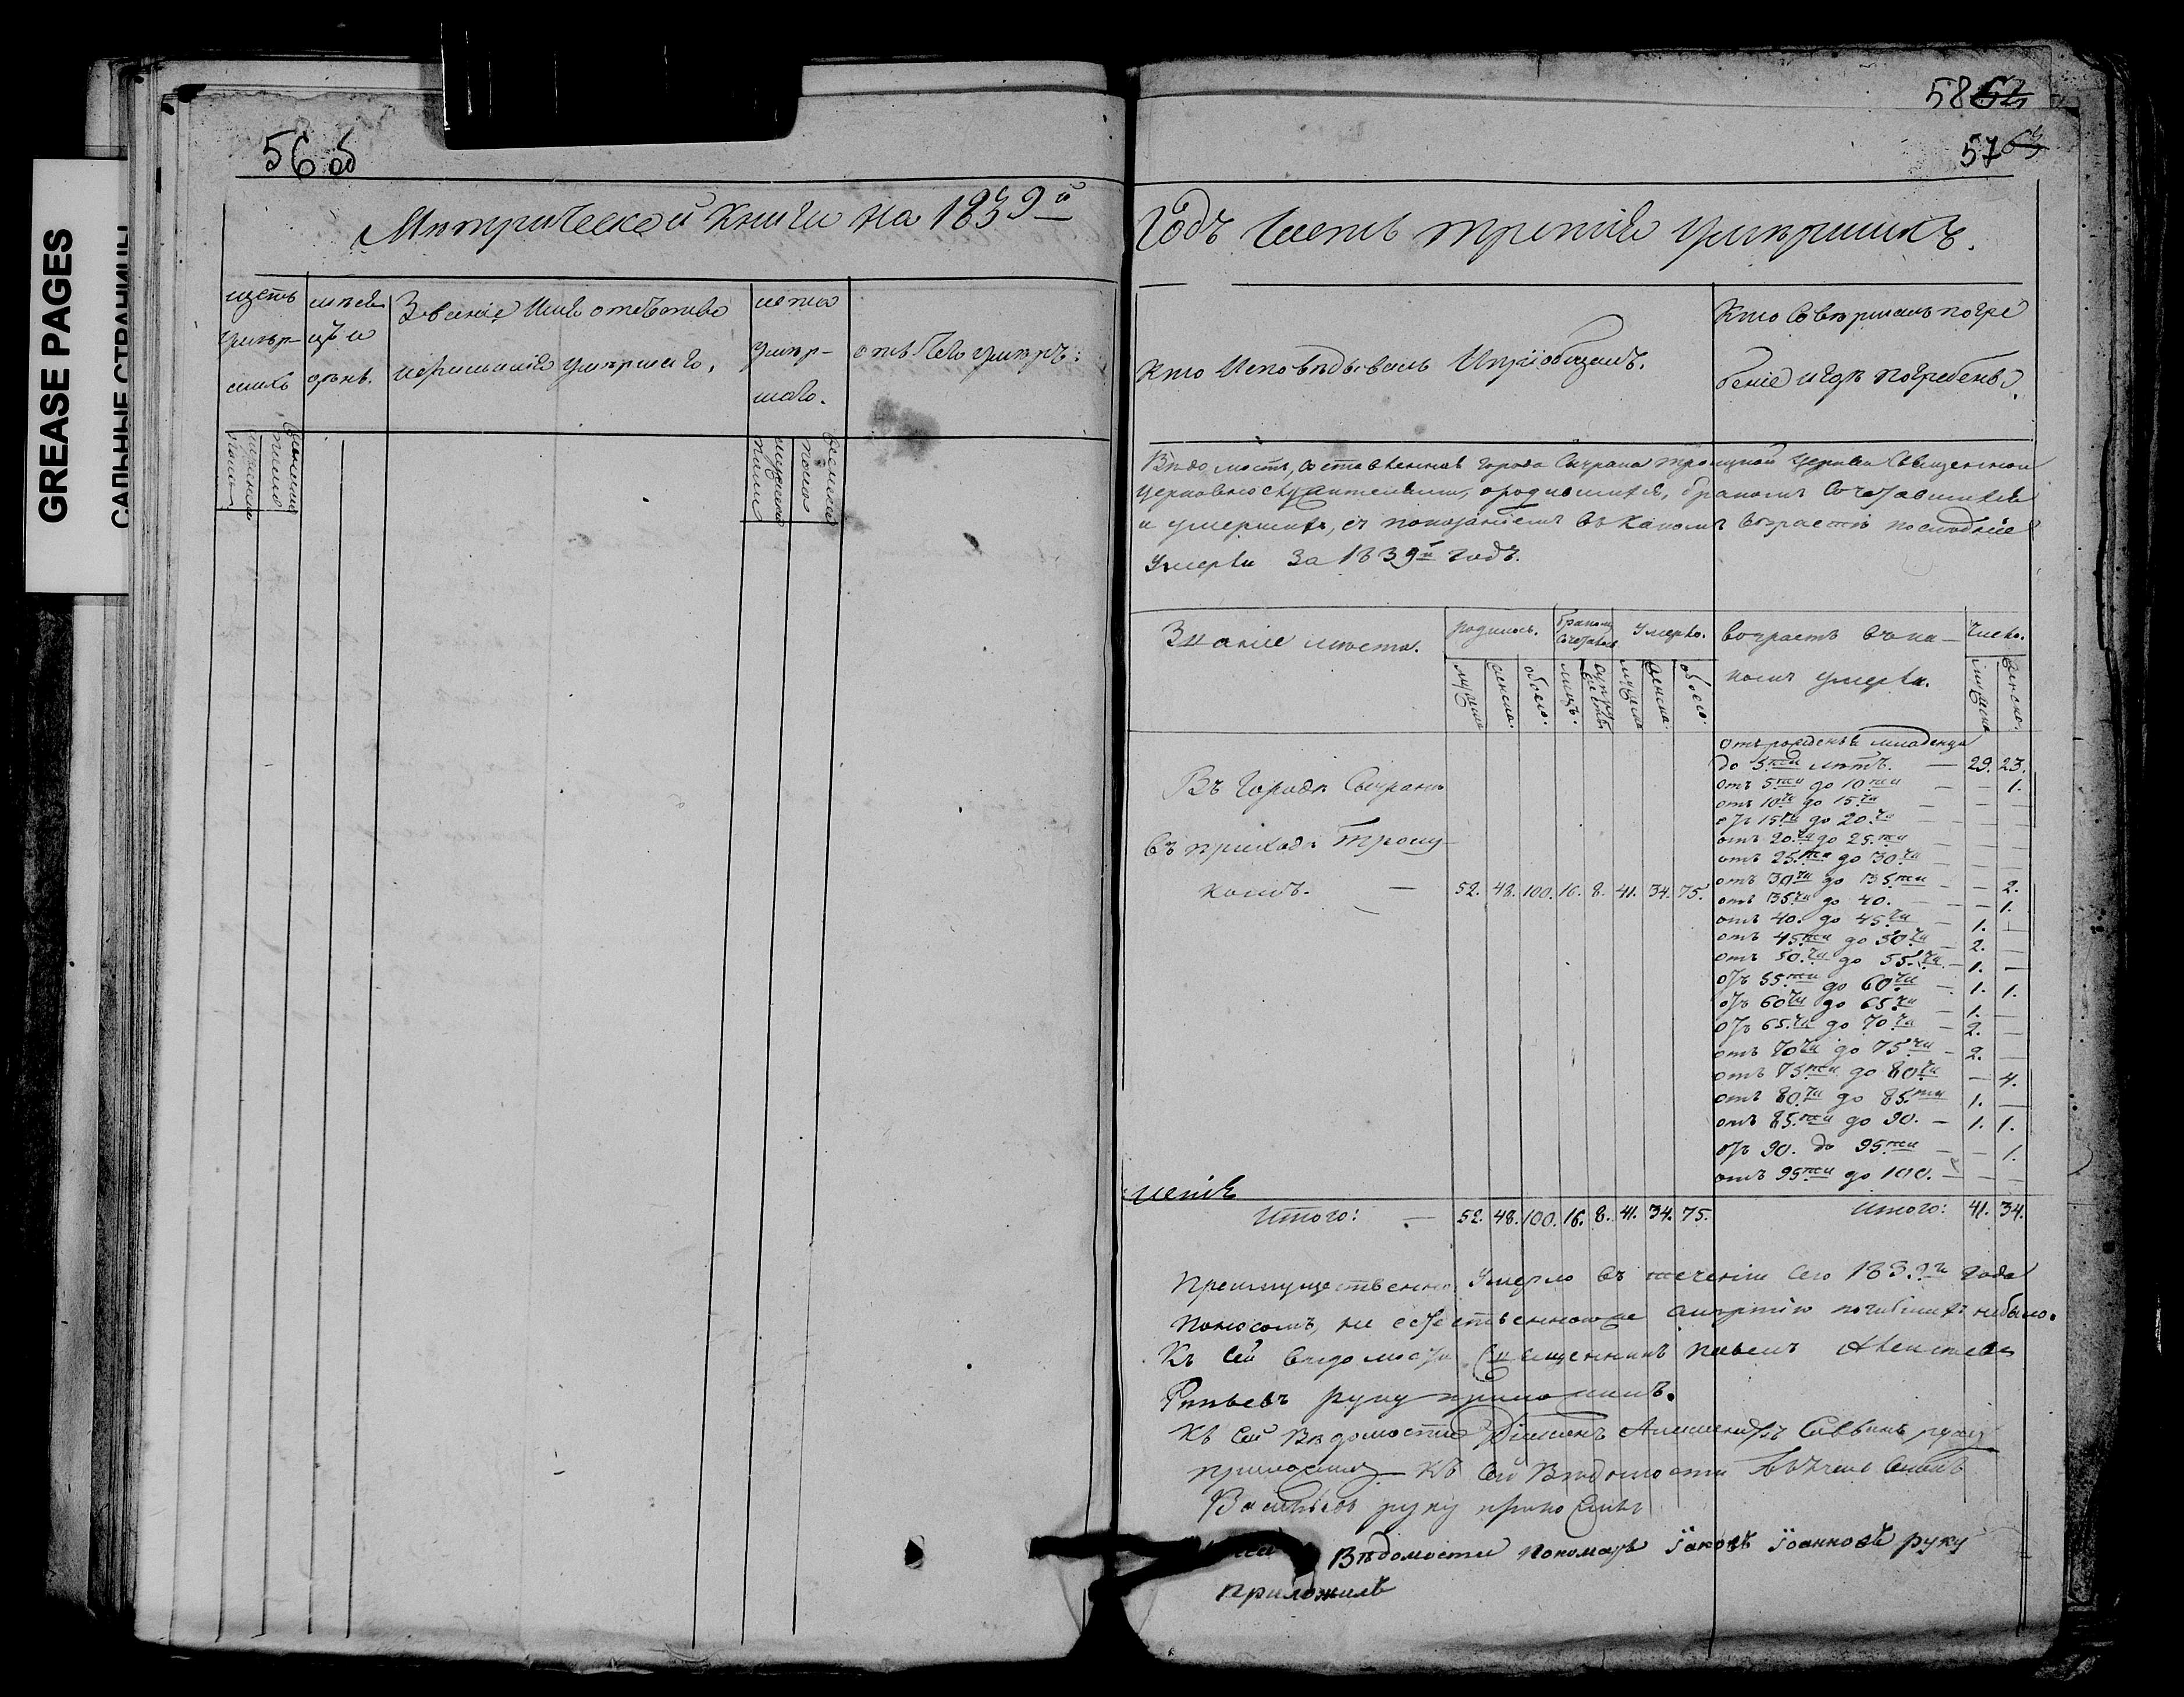 GREASE PAGES
САЛЬНЫЕ СТРАНИЦЫ
56 об
Метрической книги на 1839й
щетъ умер-шихъ
месяцъ и день.
Званіе Имя отечество и фамилія умершаго.
лета умер-шаго.
отъ чего умеръ.
мужеска пола
женска пола
мужеска пола
женска пола
5862
5763
Годъ Часть третія умершихъ.
Кто Исповѣдывалъ И пріобщалъ.
Кто Совершалъ погре
беніе и где погребены.
Вѣдомость, составленная города Сызрана Троицкой церкви Священно и
церковнослужителями, о родившихся, бракомъ Сочетавшихся
и умершихъ, съ показаніемъ въ какомъ возрасте последніе
умерли За 1839й годъ.
Званіе места.
родилось.
бракомъ сочетавш
умерло.
возрастъ въ ка-
комъ умерли.
Число.
мужска женска. обоего. лицъ. супружествъ мужска женска. обоего. мужска женска.
Въ Городе Сызране
въ приходе Троиц-
комъ. — 52. 48. 100. 16. 8. 41. 34. 75.
отъ рожденія младенца
до 5ти летъ. — 29. 23.
отъ 5ти до 10ти — — 1.
отъ 10ти до 15ти — — —
отъ 15ти до 20ти — — —
отъ 20ти до 25ти — — —
отъ 25ти до 30ти — — —
отъ 30ти до 35ти — — 2.
отъ 35ти до 40. — — 1.
отъ 40. до 45ти — 1. —
отъ 45ти до 50ти — 2. —
отъ 50ти до 55ти — 1. —
отъ 55ти до 60ти — 1. 1.
отъ 60ти до 65ти — 1. —
отъ 65ти до 70ти — 2. —
отъ 70ти до 75ти — 2. —
отъ 75ти до 80ти — 4.
отъ 80ти до 85ти 1. —
отъ 85ти до 90. — 1. 1.
отъ 90. до 95ти — — 1.
отъ 95ти до 100. — — —
Итого: — 52. 48. 100. 16. 8. 41. 34. 75.
Итого: 41. 34.
Преимущественно умерло въ теченіи сего 1839го года
поносомъ, не естественною же смертію погибшихъ небыло.
Къ сей ведомости Священникъ Павелъ Алексеевъ
руку приложилъ.
Къ сей Ведомости Діаконъ Александръ Саввинъ руку
приложилъ Къ сей Ведомости
Васильевъ руку приложилъ
Ведомости пономарь Іаковъ Іоанновъ руку
приложилъ